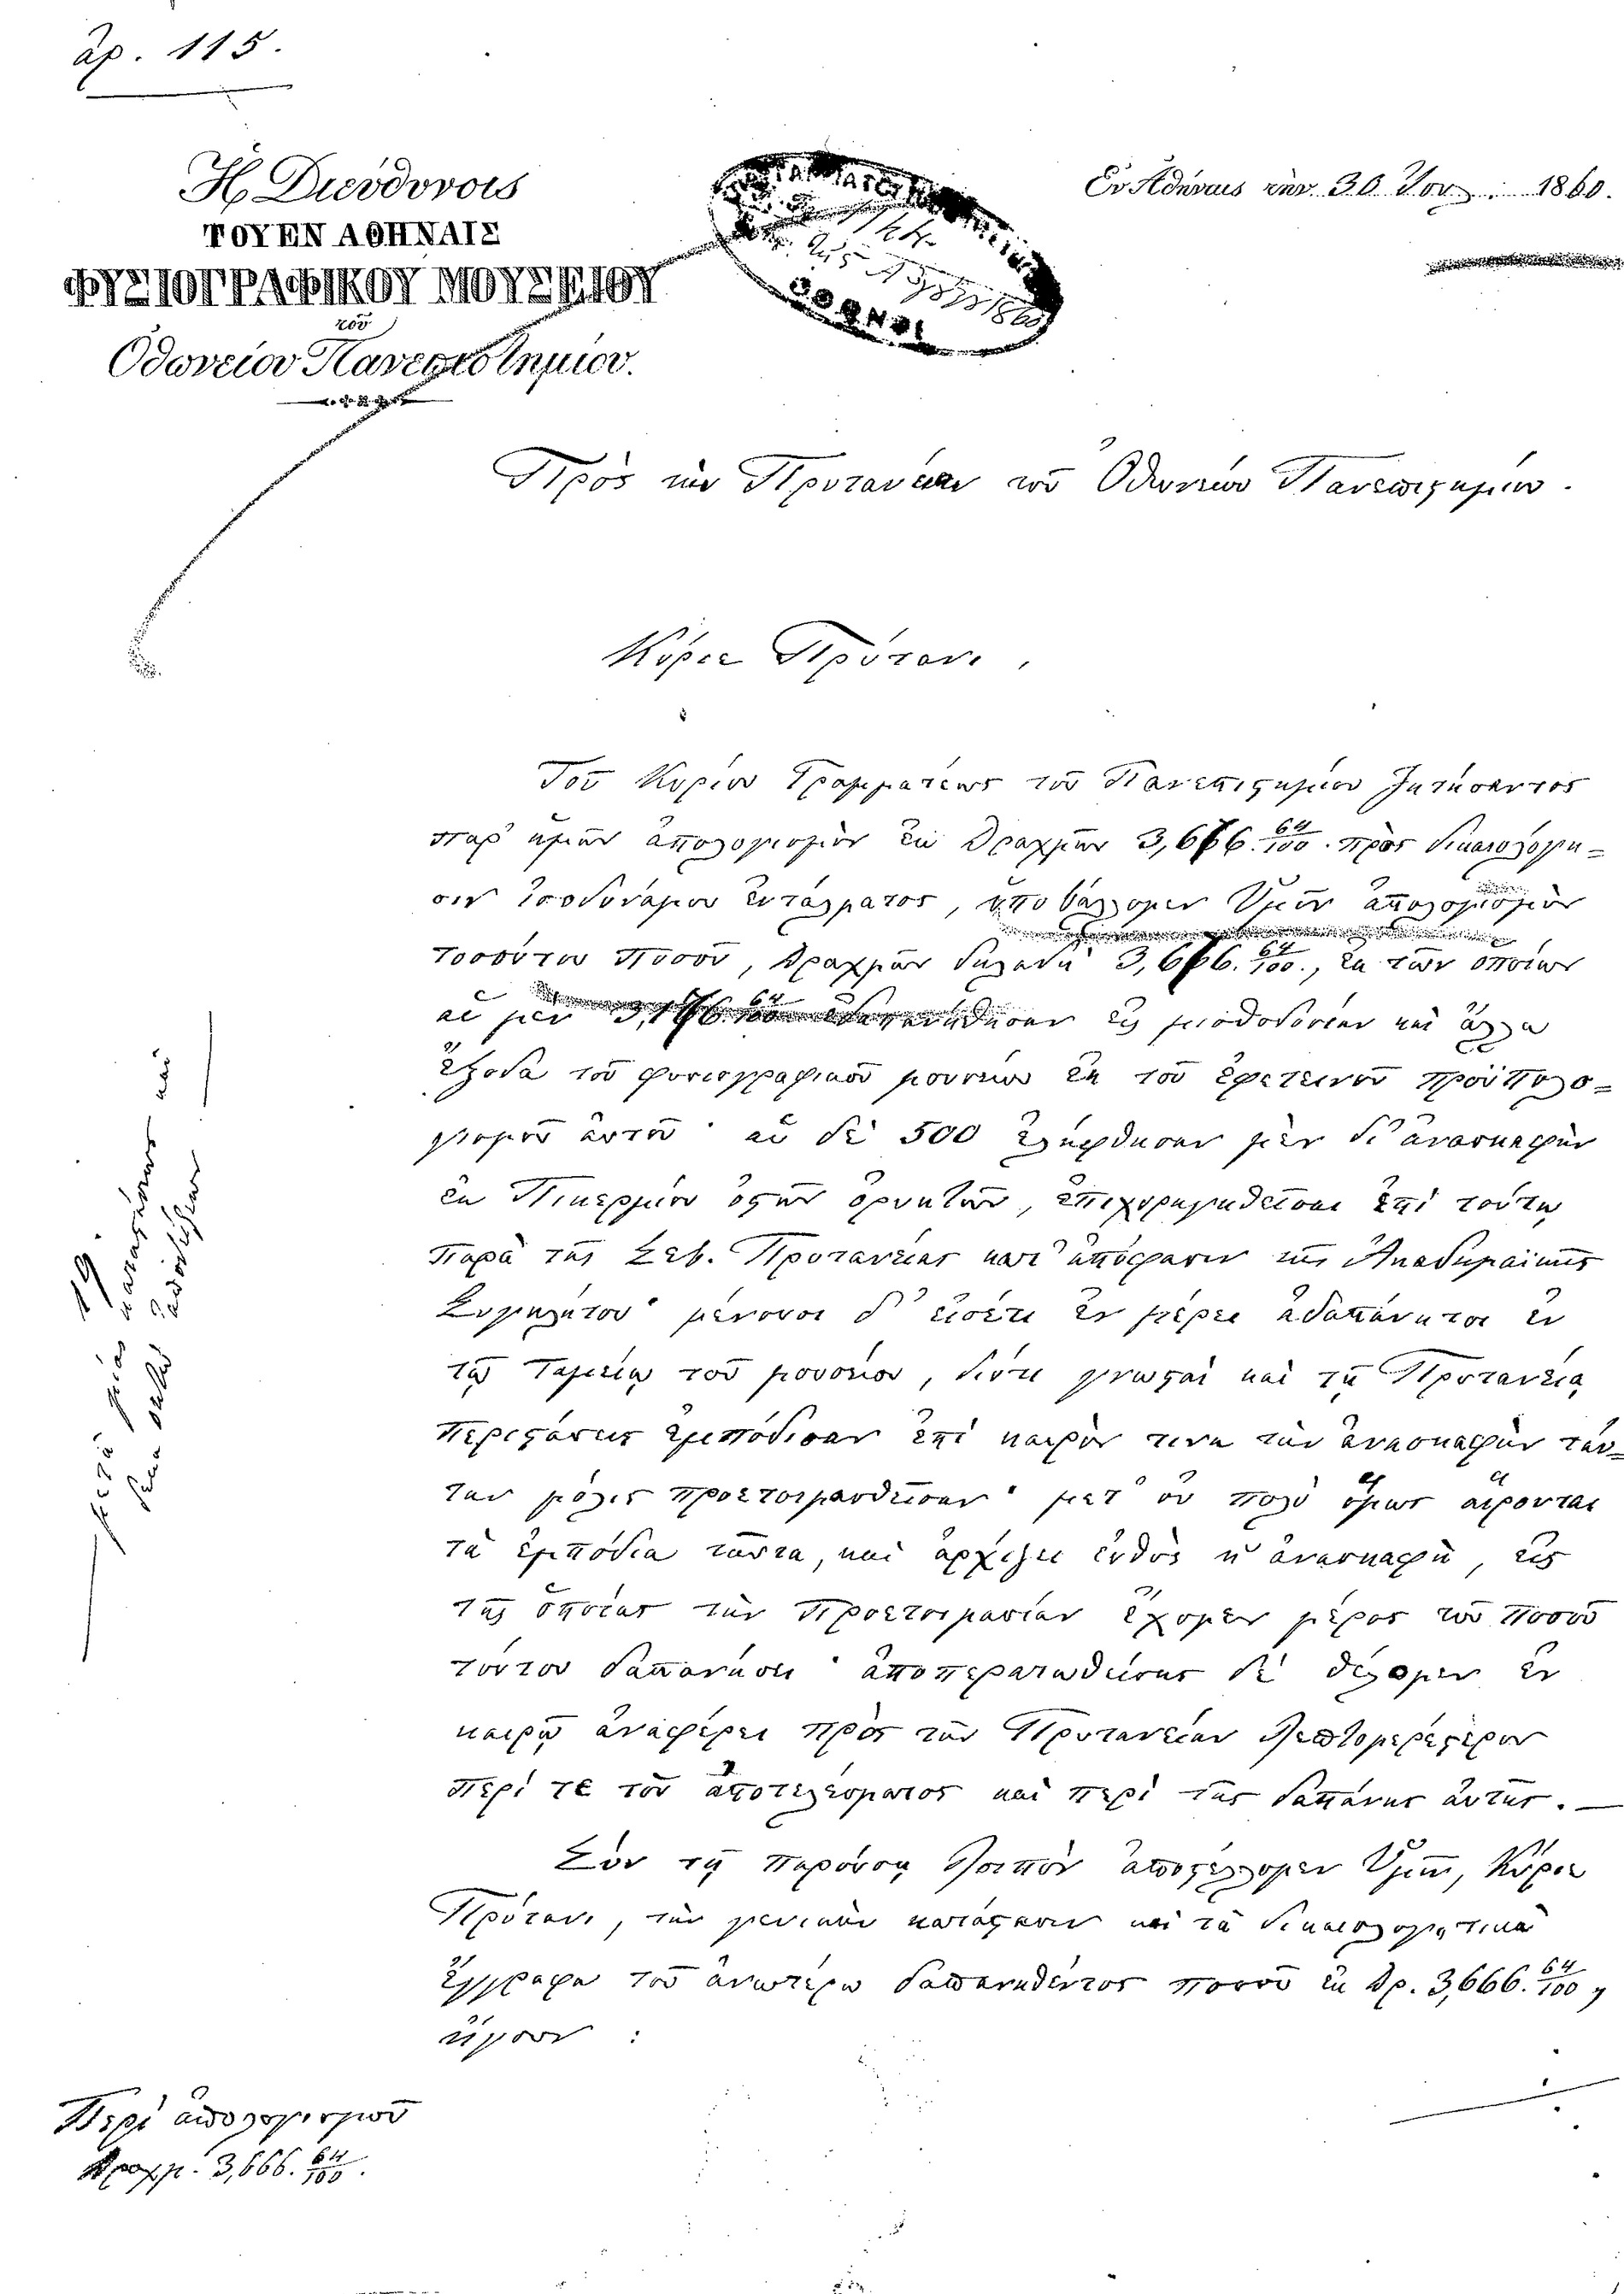 ἀρ. 115.
Ἡ Διεύθυνσις
ΤΟΥ ΕΝ ΑΘΗΝΑΙΣ
ΦΥΣΙΟΓΡΑΦΙΚΟΥ ΜΟΥΣΕΙΟΥ
τοῦ
Οθωνείου Πανεπιστημίου.
Ἐν Ἀθήναις τὴν 30 1860.
Πρὸς τὴν Πρυτανείαν τοῦ Ὀθωνείου Πανεπιστημίου.
Κύριε Πρύτανι,
Τοῦ Κυρίου Γραμματέως τοῦ Πανεπιστημίου ζητήσαντος
παρ' ἡμῶν ἀπολογισμὸν ἐκ δραχμῶν 3,666.64/100. πρὸς δικαιολόγη-
σιν ἰσοδυνάμου ἐντάλματος, ὑποβάλλομεν Ὑμῖν ἀπολογισμὸν
τοσούτου ποσοῦ, δραχμῶν δηλαδὴ 3,666.64/100., ἐκ τῶν ὁποίων
αἱ μὲν 3,166.64/100 ἐδαπανήθησαν εἰς μισθοδοσίαν καὶ ἄλλα
ἔξοδα τοῦ φυσιογραφικοῦ μουσείου ἐκ τοῦ ἐφετεινοῦ προϋπολο-
γισμοῦ αὐτοῦ· αἱ δὲ 500 ἐλήφθησαν μὲν δι' ἀνασκαφὴν
ἐκ Πικερμίου ὀστῶν ὀρυκτῶν, ἐπιχορηγηθεῖσαι ἐπὶ τούτῳ
παρὰ τῆς Σεβ. Πρυτανείας κατ' ἀπόφασιν τῆς Ἀκαδημαϊκῆς
Συγκλήτου· μένουσι δ' εἰσέτι ἐν μέρει ἀδαπάνηται ἐν
τῷ Ταμείῳ τοῦ μουσείου, διότι γνωσταὶ καὶ τῇ Πρυτανείᾳ
περιστάσεις ἐμπόδισαν ἐπὶ καιρόν τινα τὴν ἀνασκαφὴν ταύ-
την μόλις προετοιμασθεῖσαν· μετ' οὐ πολὺ ὅμως αἴρονται
τὰ ἐμπόδια ταῦτα, καὶ ἀρχίζει εὐθὺς ἡ ἀνασκαφὴ, εἰς
τῆς ὁποίας τὴν προετοιμασίαν ἔχομεν μέρος τοῦ ποσοῦ
τούτου δαπανήσει· ἀποπερατωθείσης δὲ θέλομεν ἐν
καιρῷ ἀναφέρει πρὸς τὴν Πρυτανείαν λεπτομερέστερον
περί τε τοῦ ἀποτελέσματος καὶ περὶ τῆς δαπάνης αὐτῆς.—
Σὺν τῇ παρούσῃ λοιπὸν ἀποστέλλομεν Ὑμῖν, Κύριε
Πρύτανι, τὴν γενικὴν κατάστασιν καὶ τὰ δικαιολογητικὰ
ἔγγραφα τοῦ ἀνωτέρω δαπανηθέντος ποσοῦ ἐκ δρ. 3,666.64/100,
ἤγουν:
Περὶ ἀπολογισμοῦ
δραχμ. 3,666.64/100.